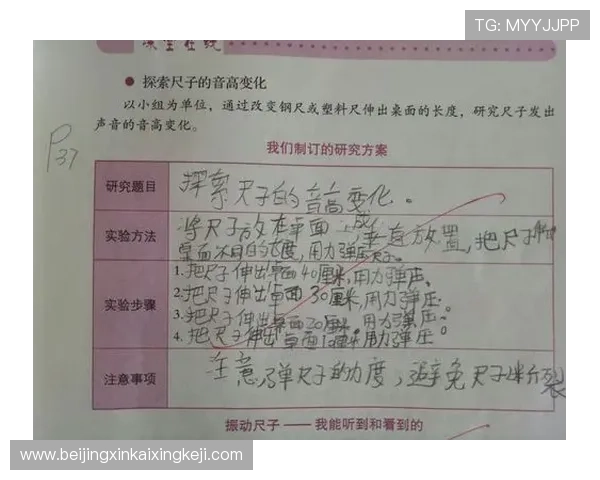 TG: MYYJJPP
课堂在线
● 探索尺子的音高变化
以小组为单位，通过改变钢尺或塑料尺伸出桌面的长度，研究尺子发出
声音的音高变化。
P37
我们制订的研究方案
研究题目
探索尺子的音高变化。
实验方法
将尺子放在桌面上成垂直放置，把尺子伸出
桌面不同的长度，用力弹压尺子。
实验步骤
1.把尺子伸出桌面40厘米，用力弹压。
2.把尺子伸出桌面30厘米，用力弹压。
3.把尺子伸出桌面20厘米，用力弹压。
4.把尺子伸出桌面10厘米，用力弹压。
注意事项
注意弹尺子的力度，避免尺子迸分裂
振动尺子——我能听到和看到的
www.beijingxinkaixingkeji.com